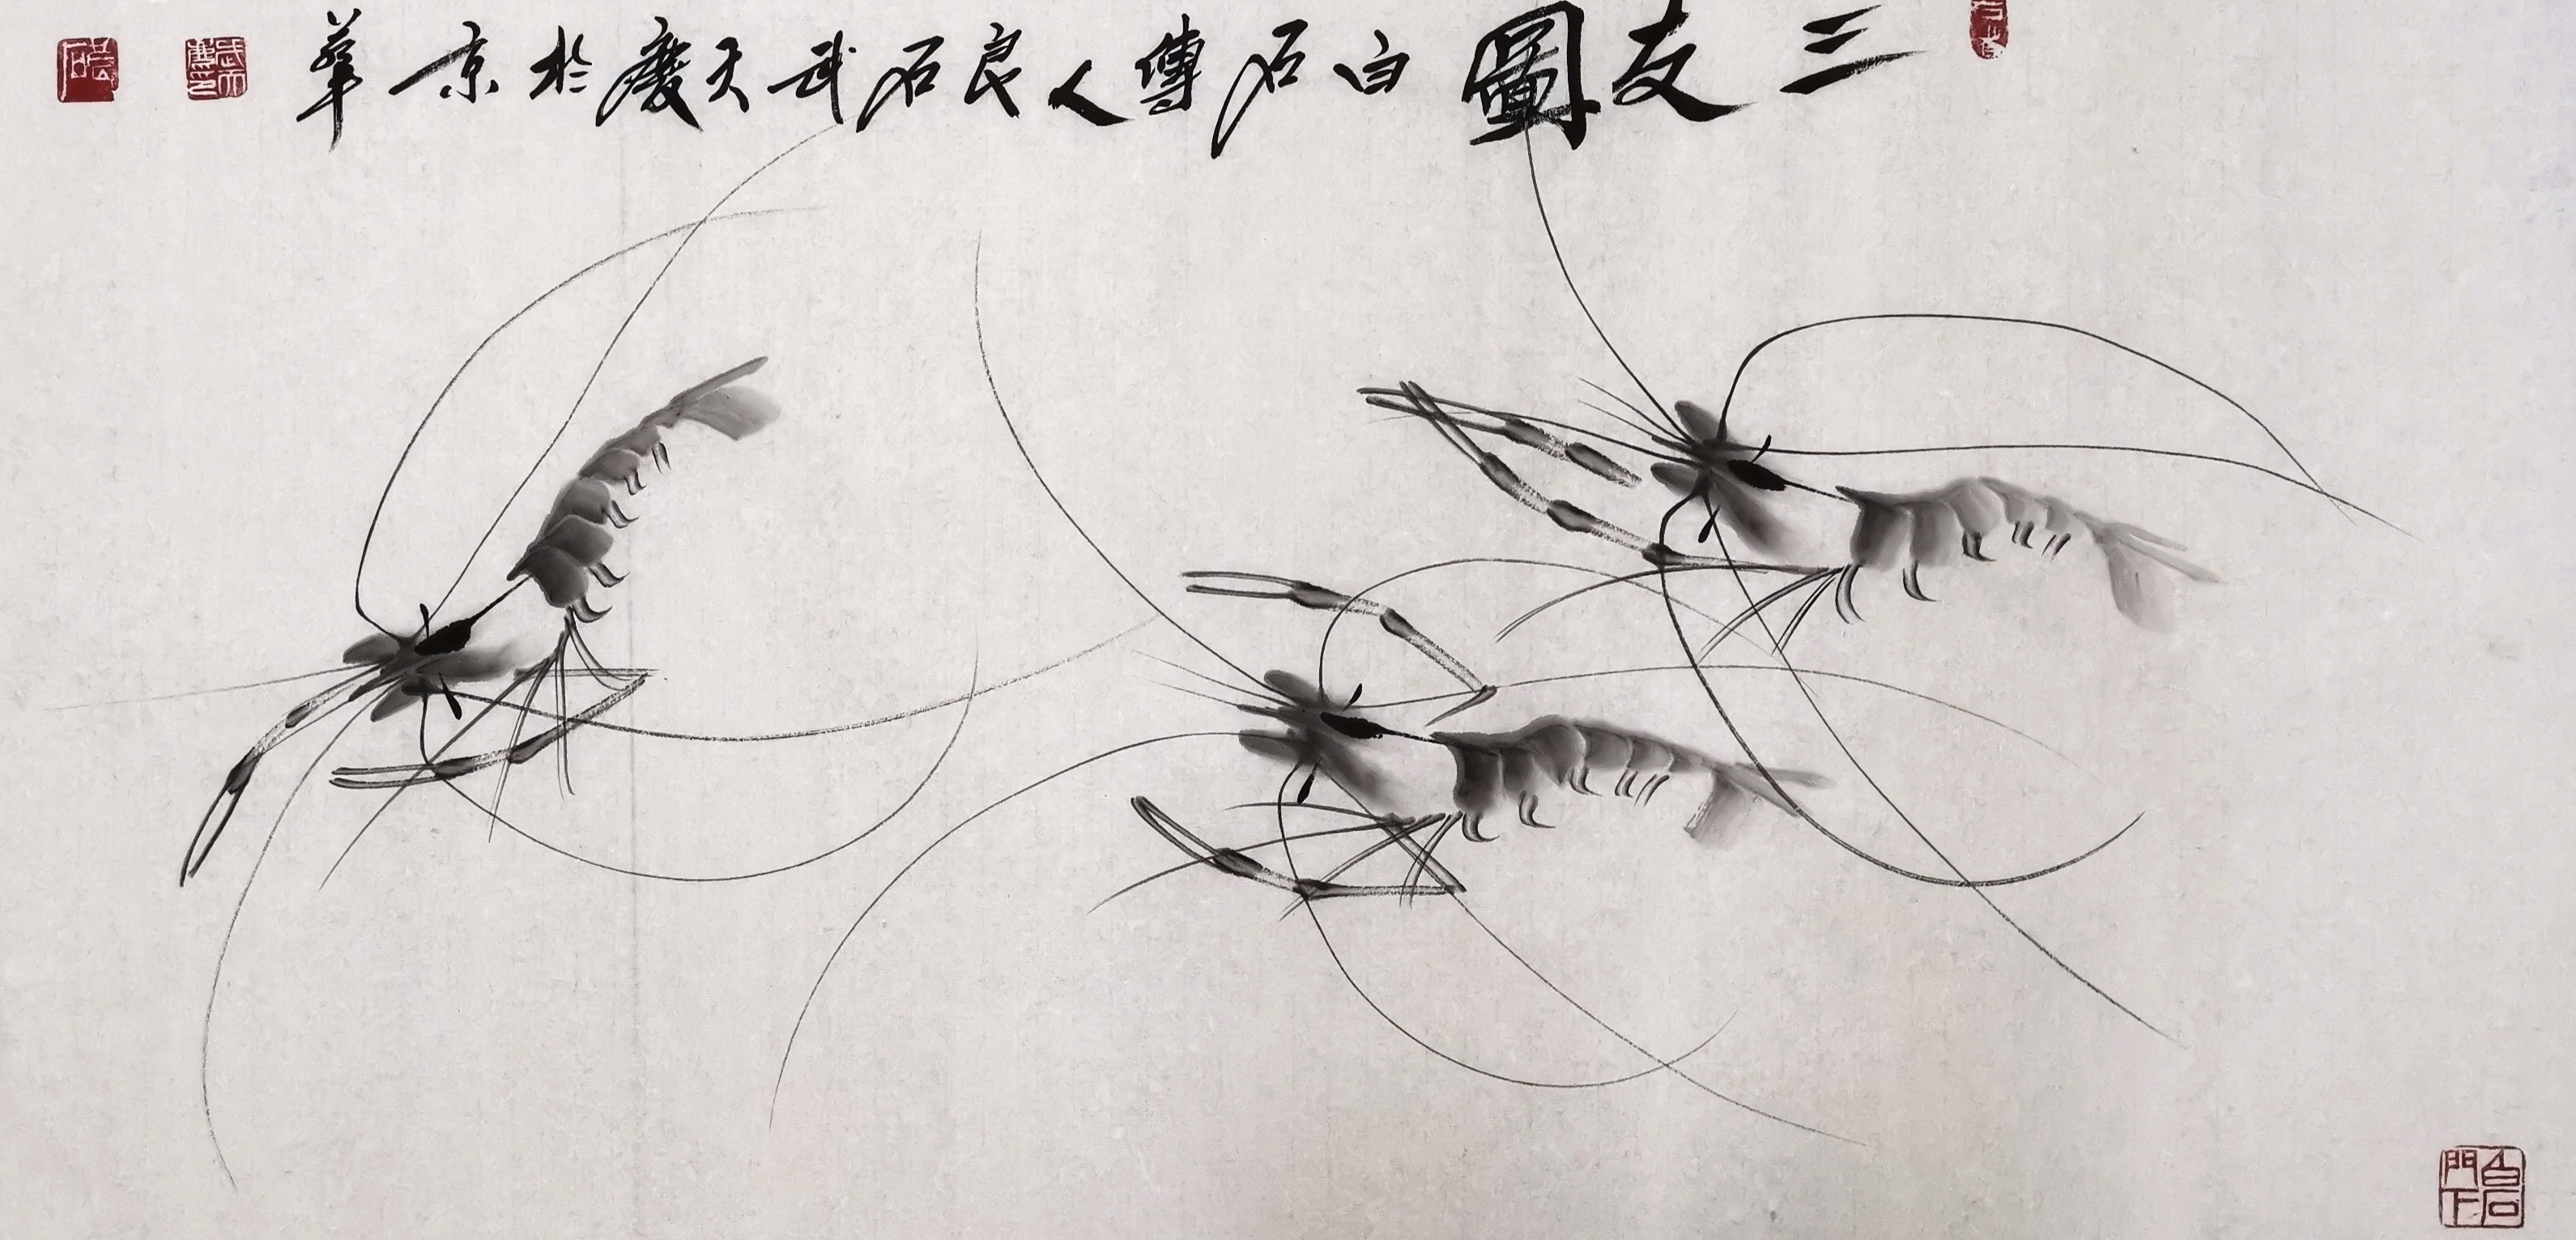 三友圖 白石傳人良石武天慶於京華
白石門下